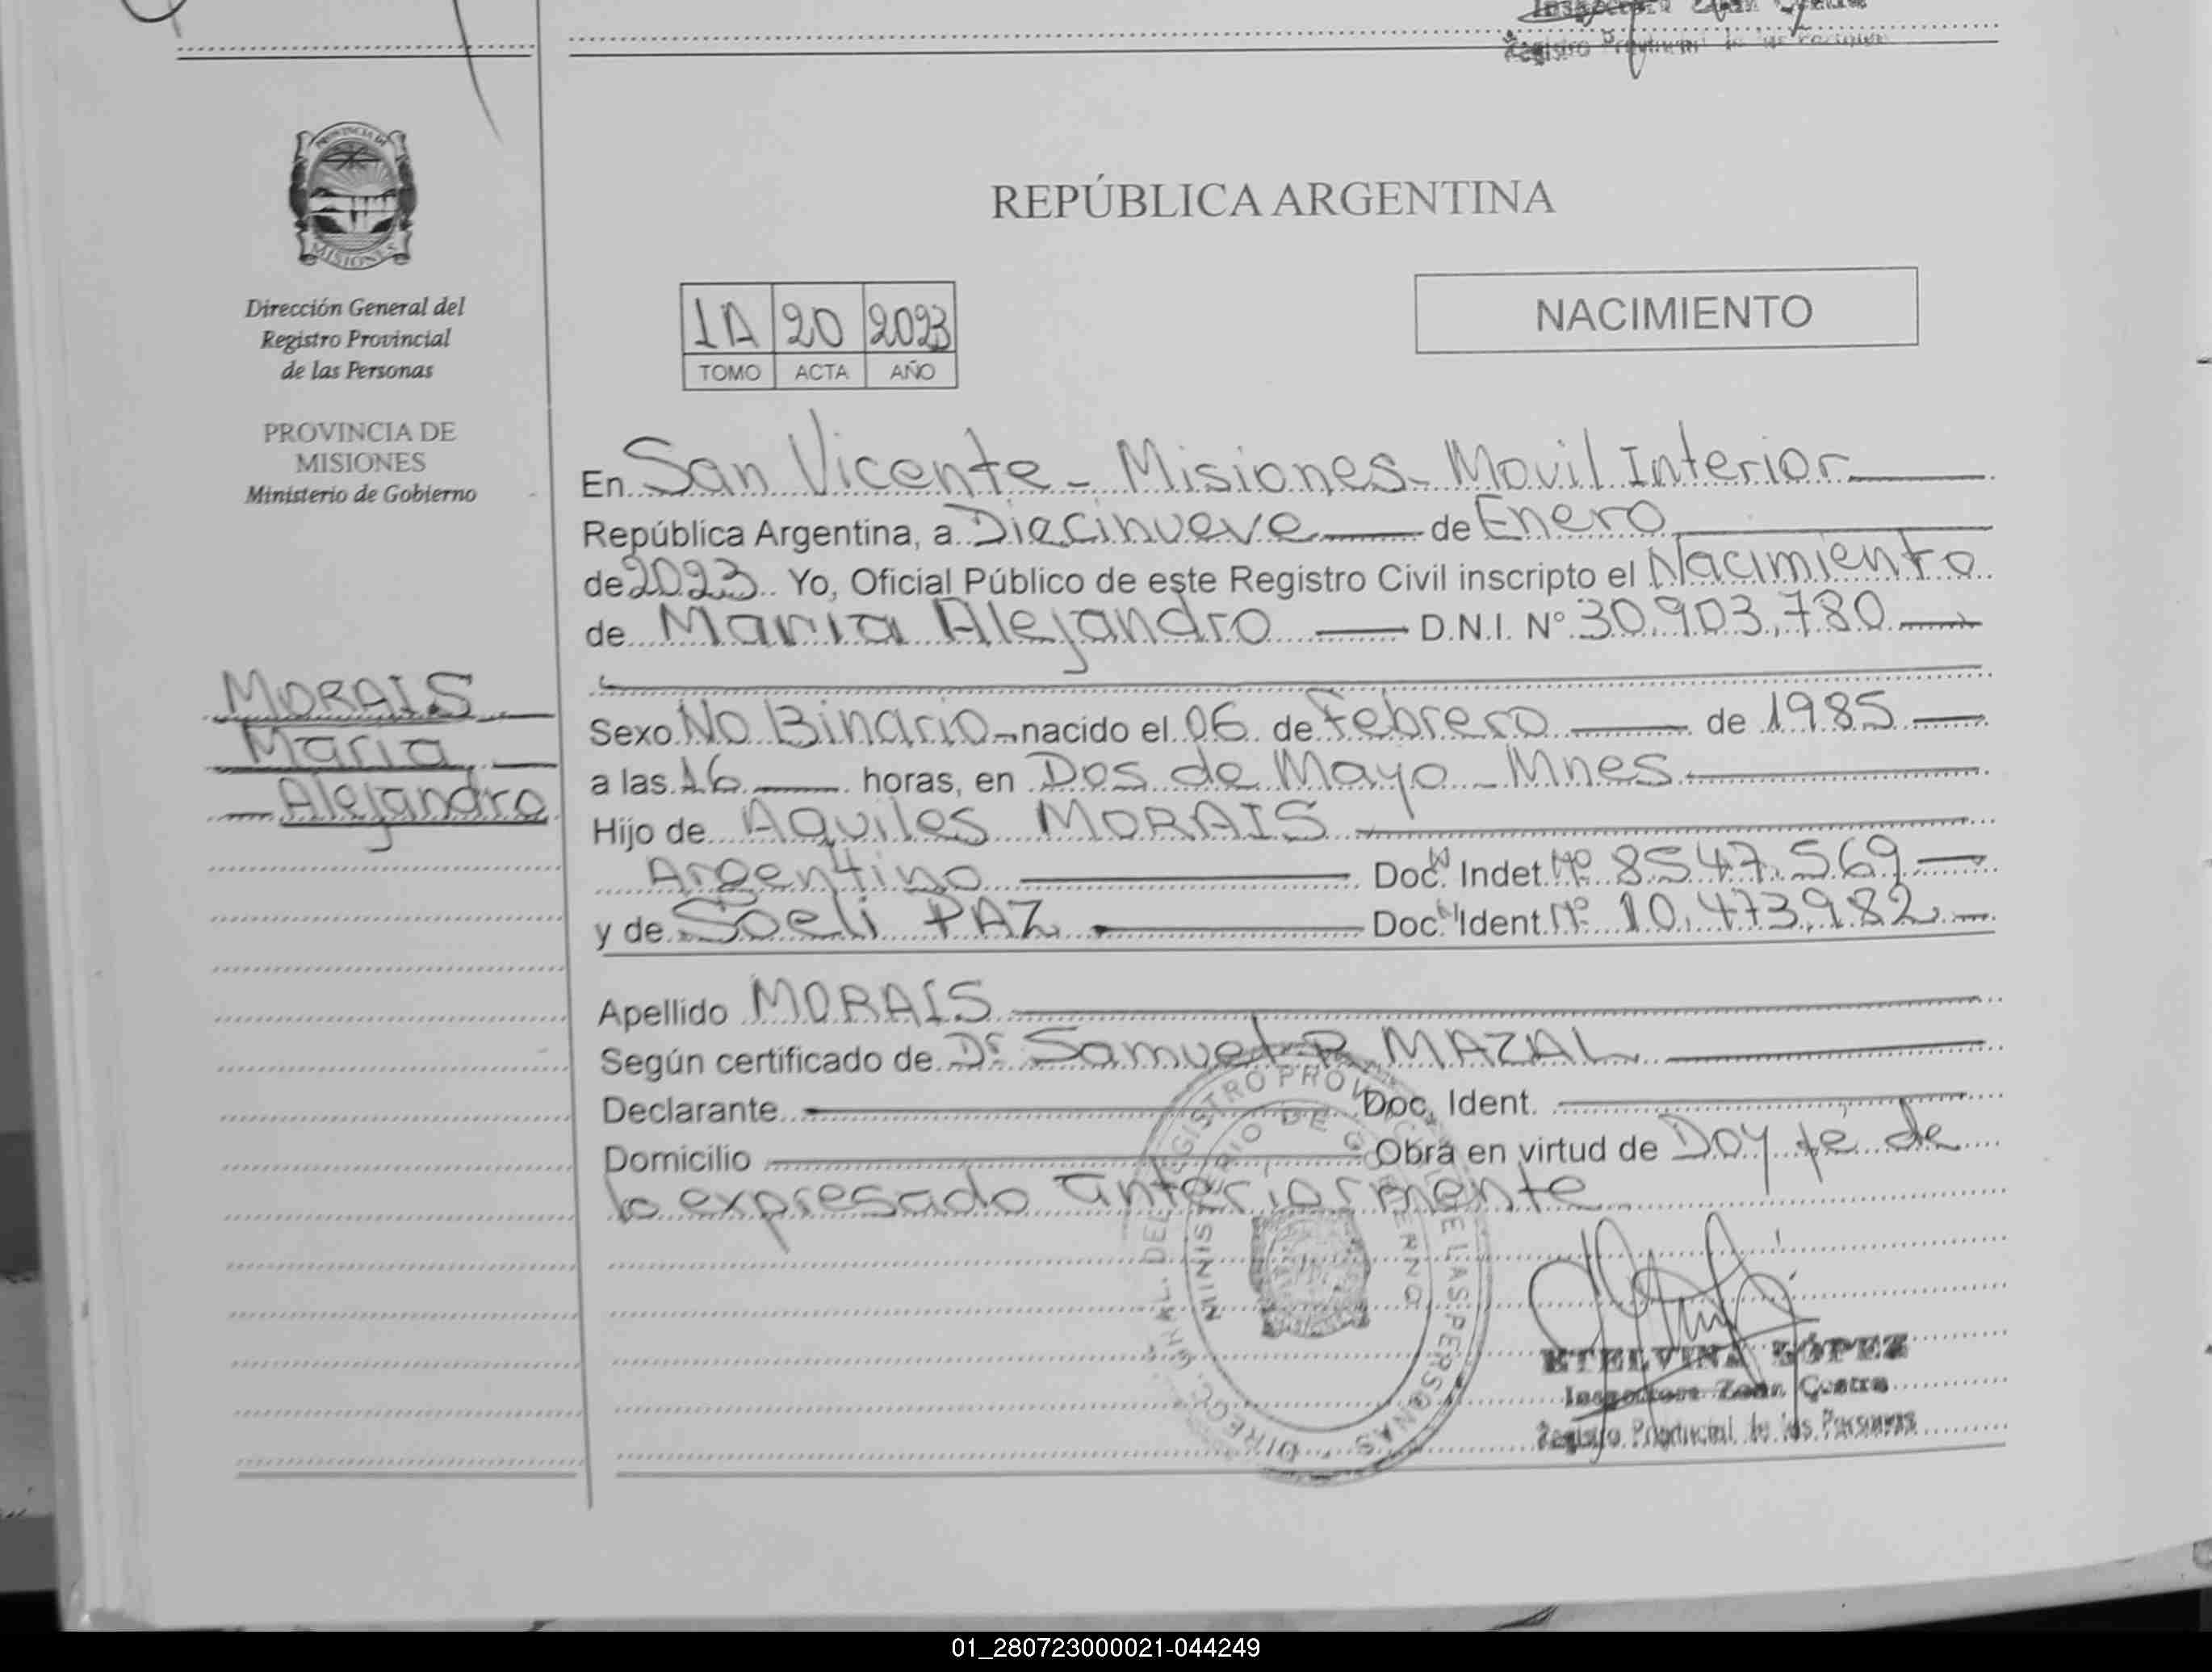 Registro Provincial de las Personas
PROVINCIA DE
MISIONES
Dirección General del
Registro Provincial
de las Personas
PROVINCIA DE
MISIONES
Ministerio de Gobierno
MORAIS
Maria
Alejandro
REPÚBLICA ARGENTINA
1A 20 2023
TOMO ACTA AÑO
NACIMIENTO
En San Vicente - Misiones - Movil Interior
República Argentina, a Diecinueve de Enero
de 2023. Yo, Oficial Público de este Registro Civil inscripto el Nacimiento
de Maria Alejandro D.N.I. Nº 30.903.780
Sexo No Binario nacido el 06 de Febrero de 1985
a las 16 horas, en Dos de Mayo - Mnes
Hijo de Aquiles MORAIS
Argentino Doc. Indet. Nº 8547.569
y de Soeli PAZ Doc. Ident. Nº 10.473.982
Apellido MORAIS
Según certificado de Dr. Samuel R MAZAL
Declarante Doc. Ident.
Domicilio Obra en virtud de Doy fé de
lo expresado anteriormente
DIRECC. GRAL. DEL REGISTRO PROVINCIAL DE LAS PERSONAS
MINISTERIO DE GOBIERNO
ETELVINA LÓPEZ
Inspectora Zona Centro
Registro Provincial de las Personas
01_280723000021-044249